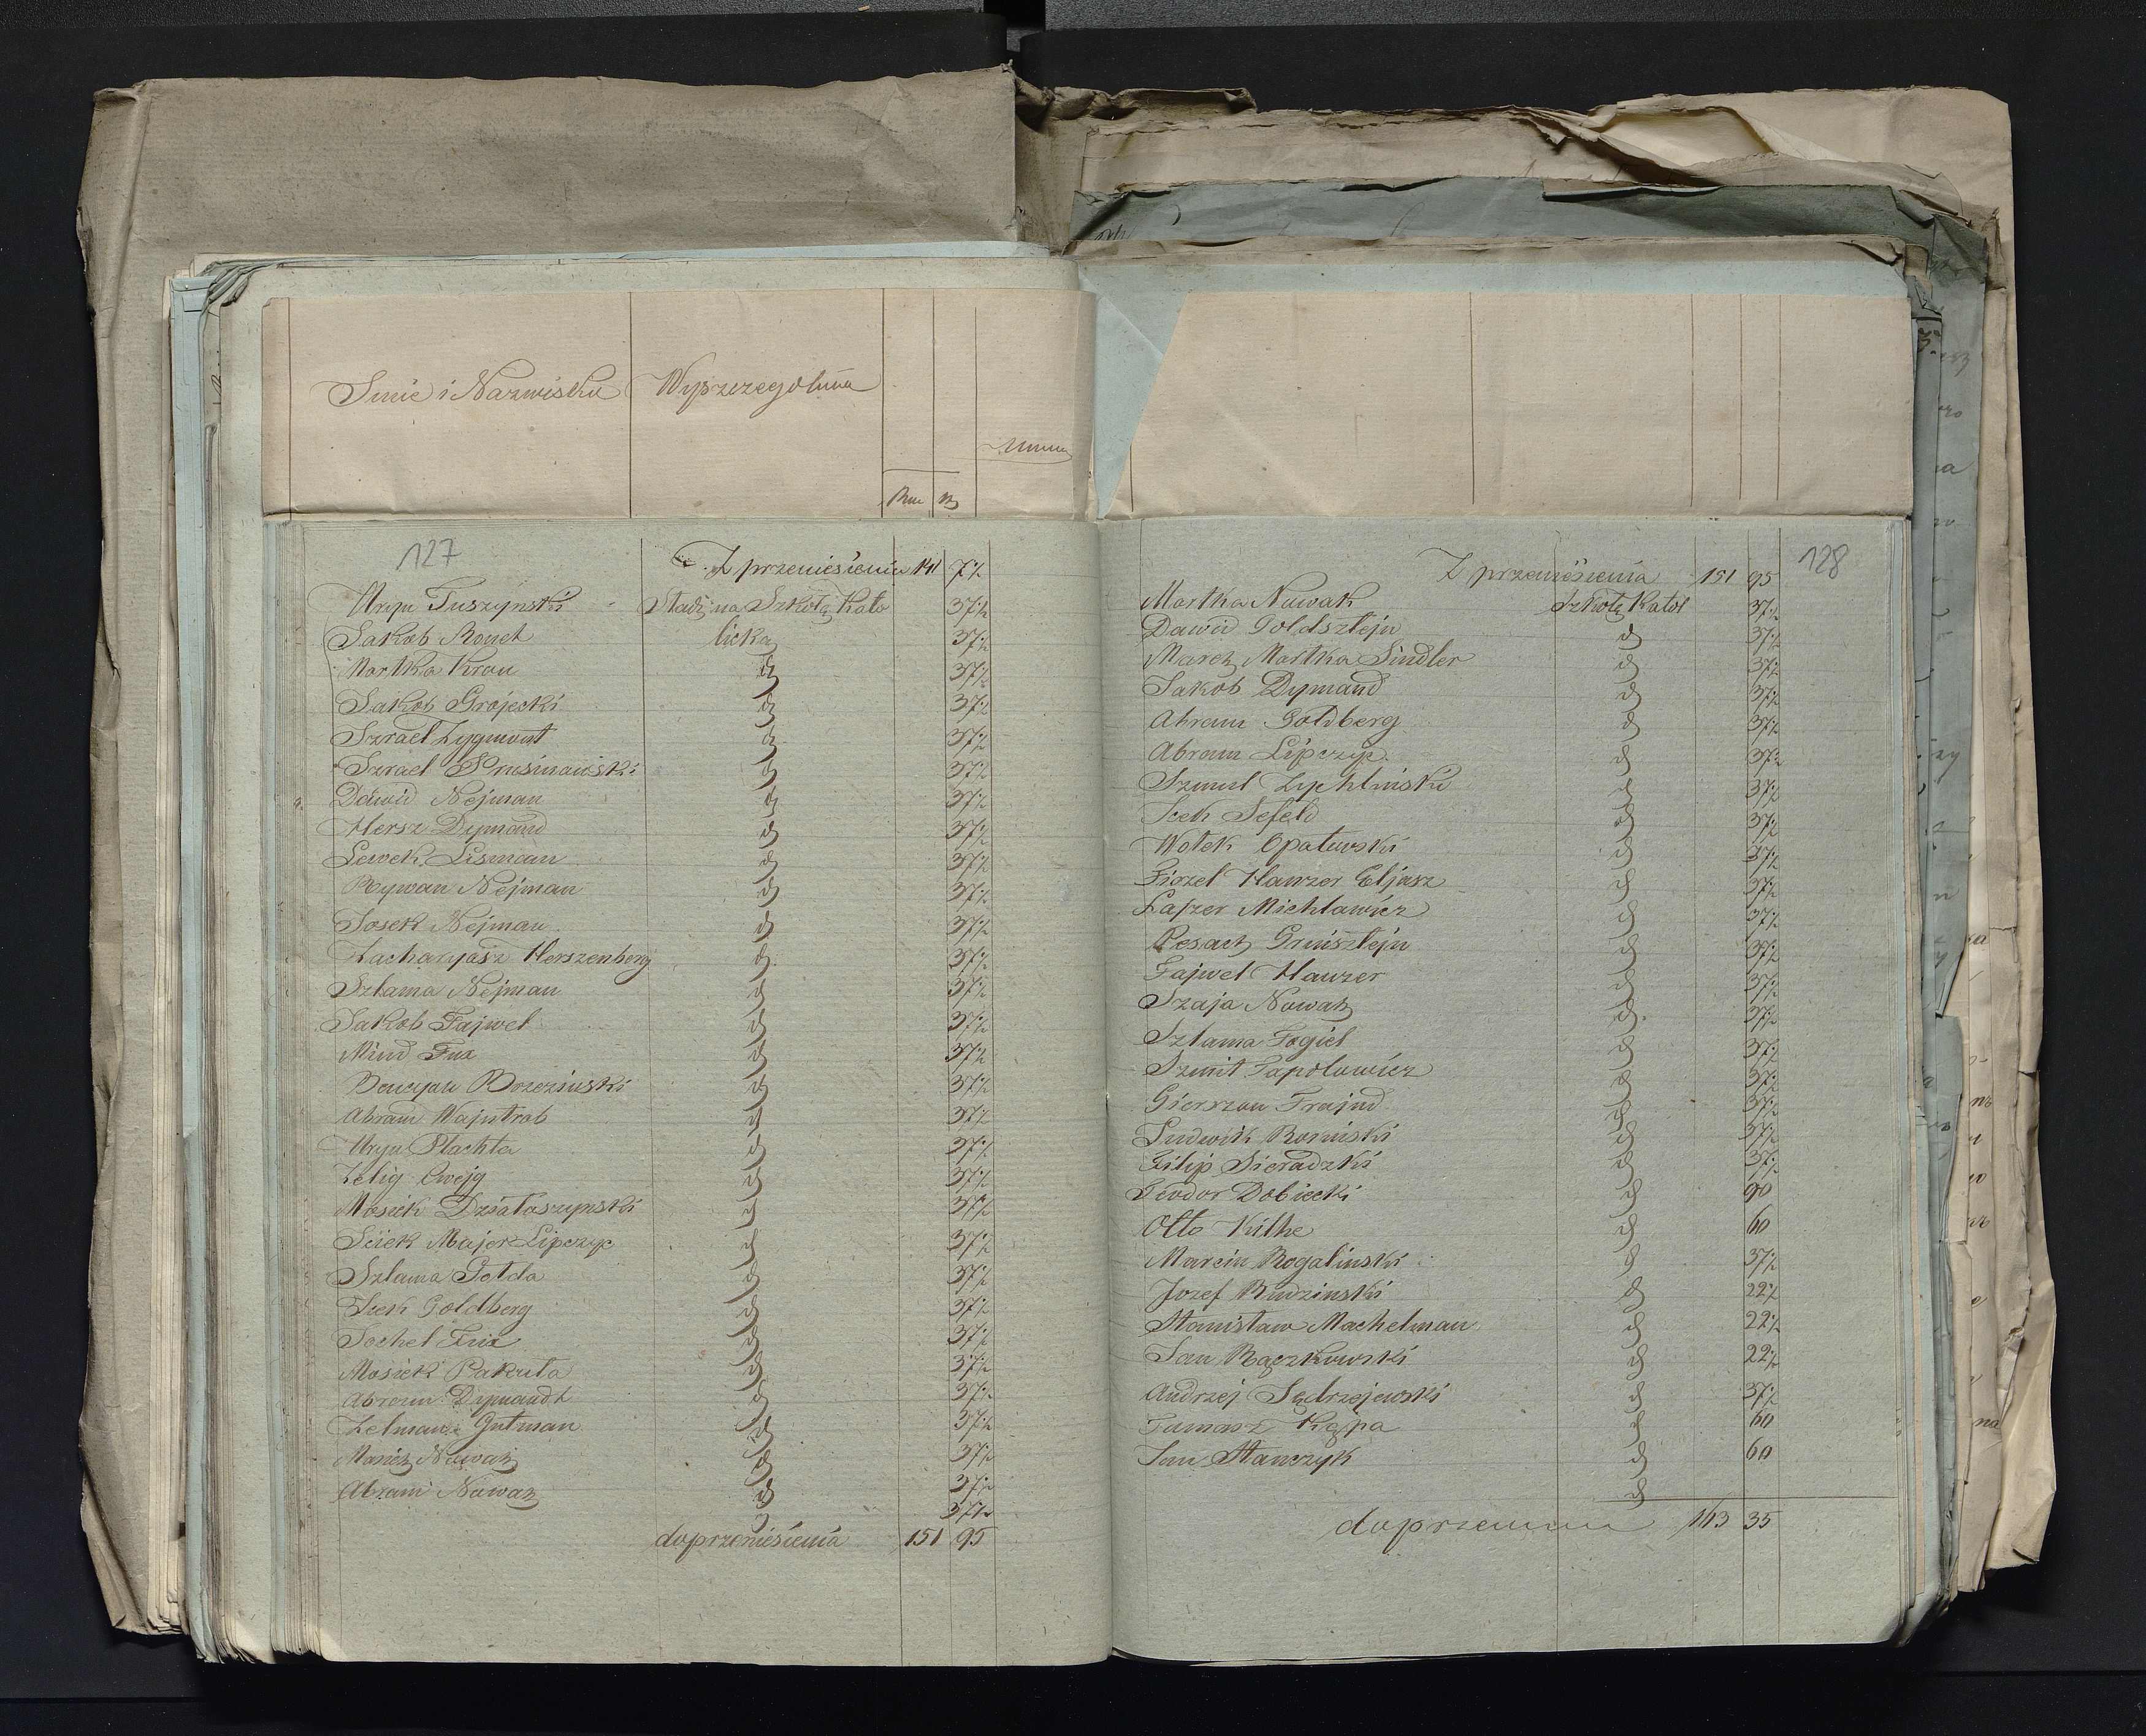 Imie i Nazwisko Wyszczegolnia
Rur K
127
Z przeniesienia 141 7½
Uryn Tuszynski Skladki na Szkołę Kato 37½
Jakob Rouch licką 37½
Mortka Kron d 37½
Jakob Grojecki d 37½
Izrael Zygmont d 37½
Izrael Prusinowski d 37½
Dawid Nejman d 37½
Hersz Dymand d 37½
Lewek Lisman d 37½
Rywan Nejman d 37½
Josek Nejman d 37½
Zacharyasz Herszenberg d 37½
Szlama Nejman d 37½
Jakob Fajwel d 37½
Mind Fux d 37½
Bencyan Brzezinski d 37½
Abram Wajntrob d 37½
Uryn Plachta d 37½
Zelig Cwejg d 37½
Mosiek Działoszynski d 37½
Iciek Majer Lipczyc d 37½
Szlama Golda d 37½
Icek Goldberg d 37½
Jochel Fux d 37½
Mosiek Pakuła d 37½
Abram Dymandt d 37½
Zelman Gutman d 37½
Nowak d 37½
Abram Nowak d 37½
37½
do przeniesienia 151 95
128
Z przeniesienia 151 95
Mortka Nowak Szkołę Katol 37½
Dawid Goldsztejn d 37½
Mortka Sindler d 37½
Jakob Dymand d 37½
Abram Goldberg d 37½
Abram Lipczyc d 37½
Szmul Zychlinski d 37½
Icek Sefeld d 37½
Wolek Opatowski d 37½
Hauzer Eljasz d 37½
Lajzer Michlawicz d 37½
Pesach Grinsztejn d 37½
Fajwel Hauzer d 37½
Szaja Nowak d 37½
Szlama Fogiel d 37½
Szmit Topolowicz d 37½
Gierszon Frajnd d 37½
Ludwik Rosinski d 37½
Filip Sieradzki d 37½
Teodor Dobiecki d 90
Otto Kithe d 60
Marcin Rogalinski d 37½
Jozef Rudzinski d 22½
Stanisław Machelman d 22½
Jan Rączkowski d 22½
Andrzej Jędrzejewski d 37½
Tomasz Kępa d 60
Jan Stanczyk d 60
d
do przeniesienia 163 35